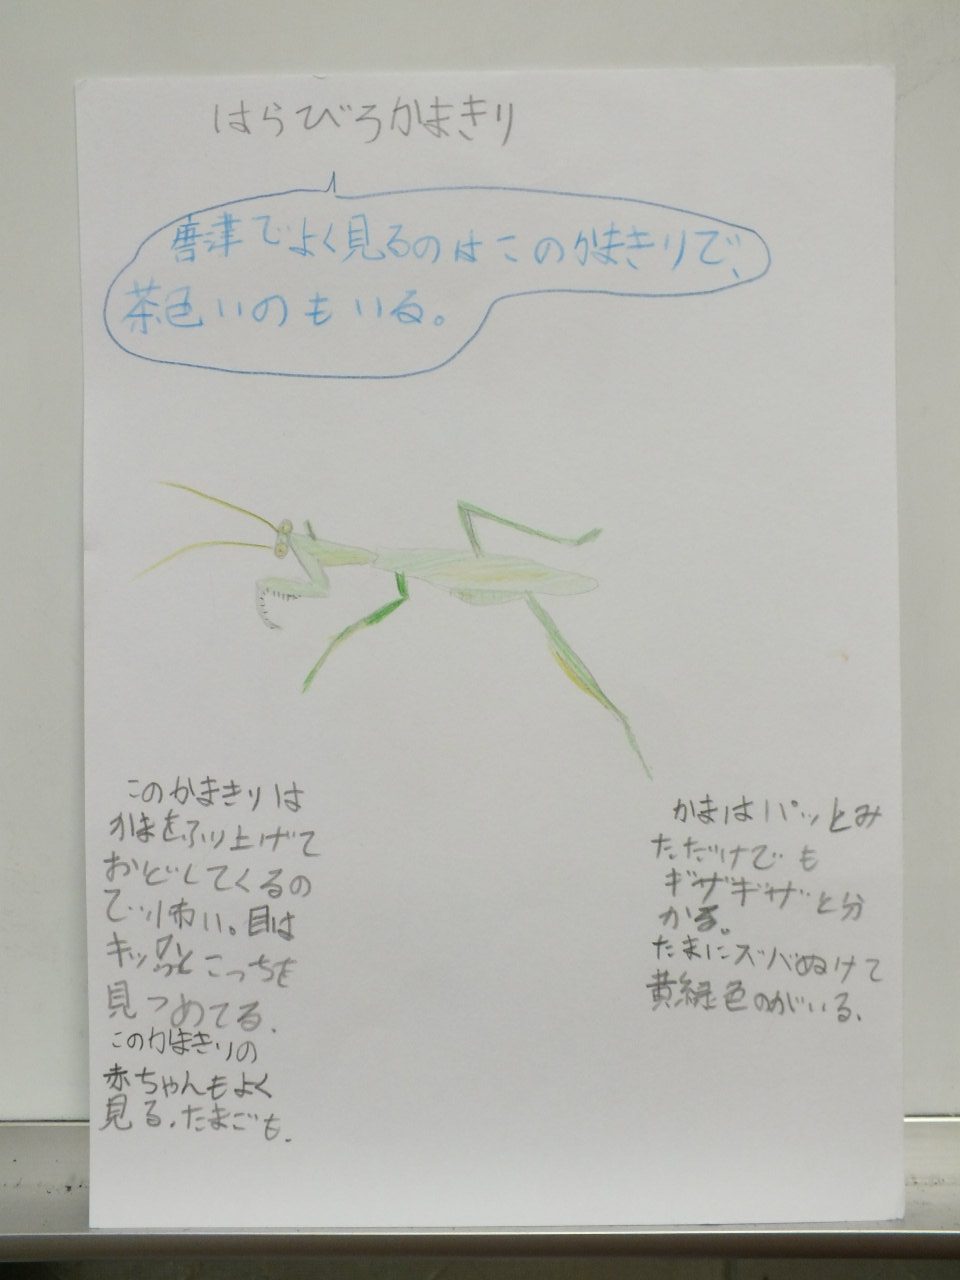 はらびろかまきり
唐津でよく見るのはこのかまきりで、
茶色いのもいる。
このかまきりは
かまをふり上げて
おどしてくるの
で怖い。目は
キッと こっちを
見つめてる.
このかまきりの
赤ちゃんもよく
見る.たまごも.
かまはパッとみ
ただけでも
ギザギザと分
かる。
たまにズバぬけて
黄緑色のがいる.